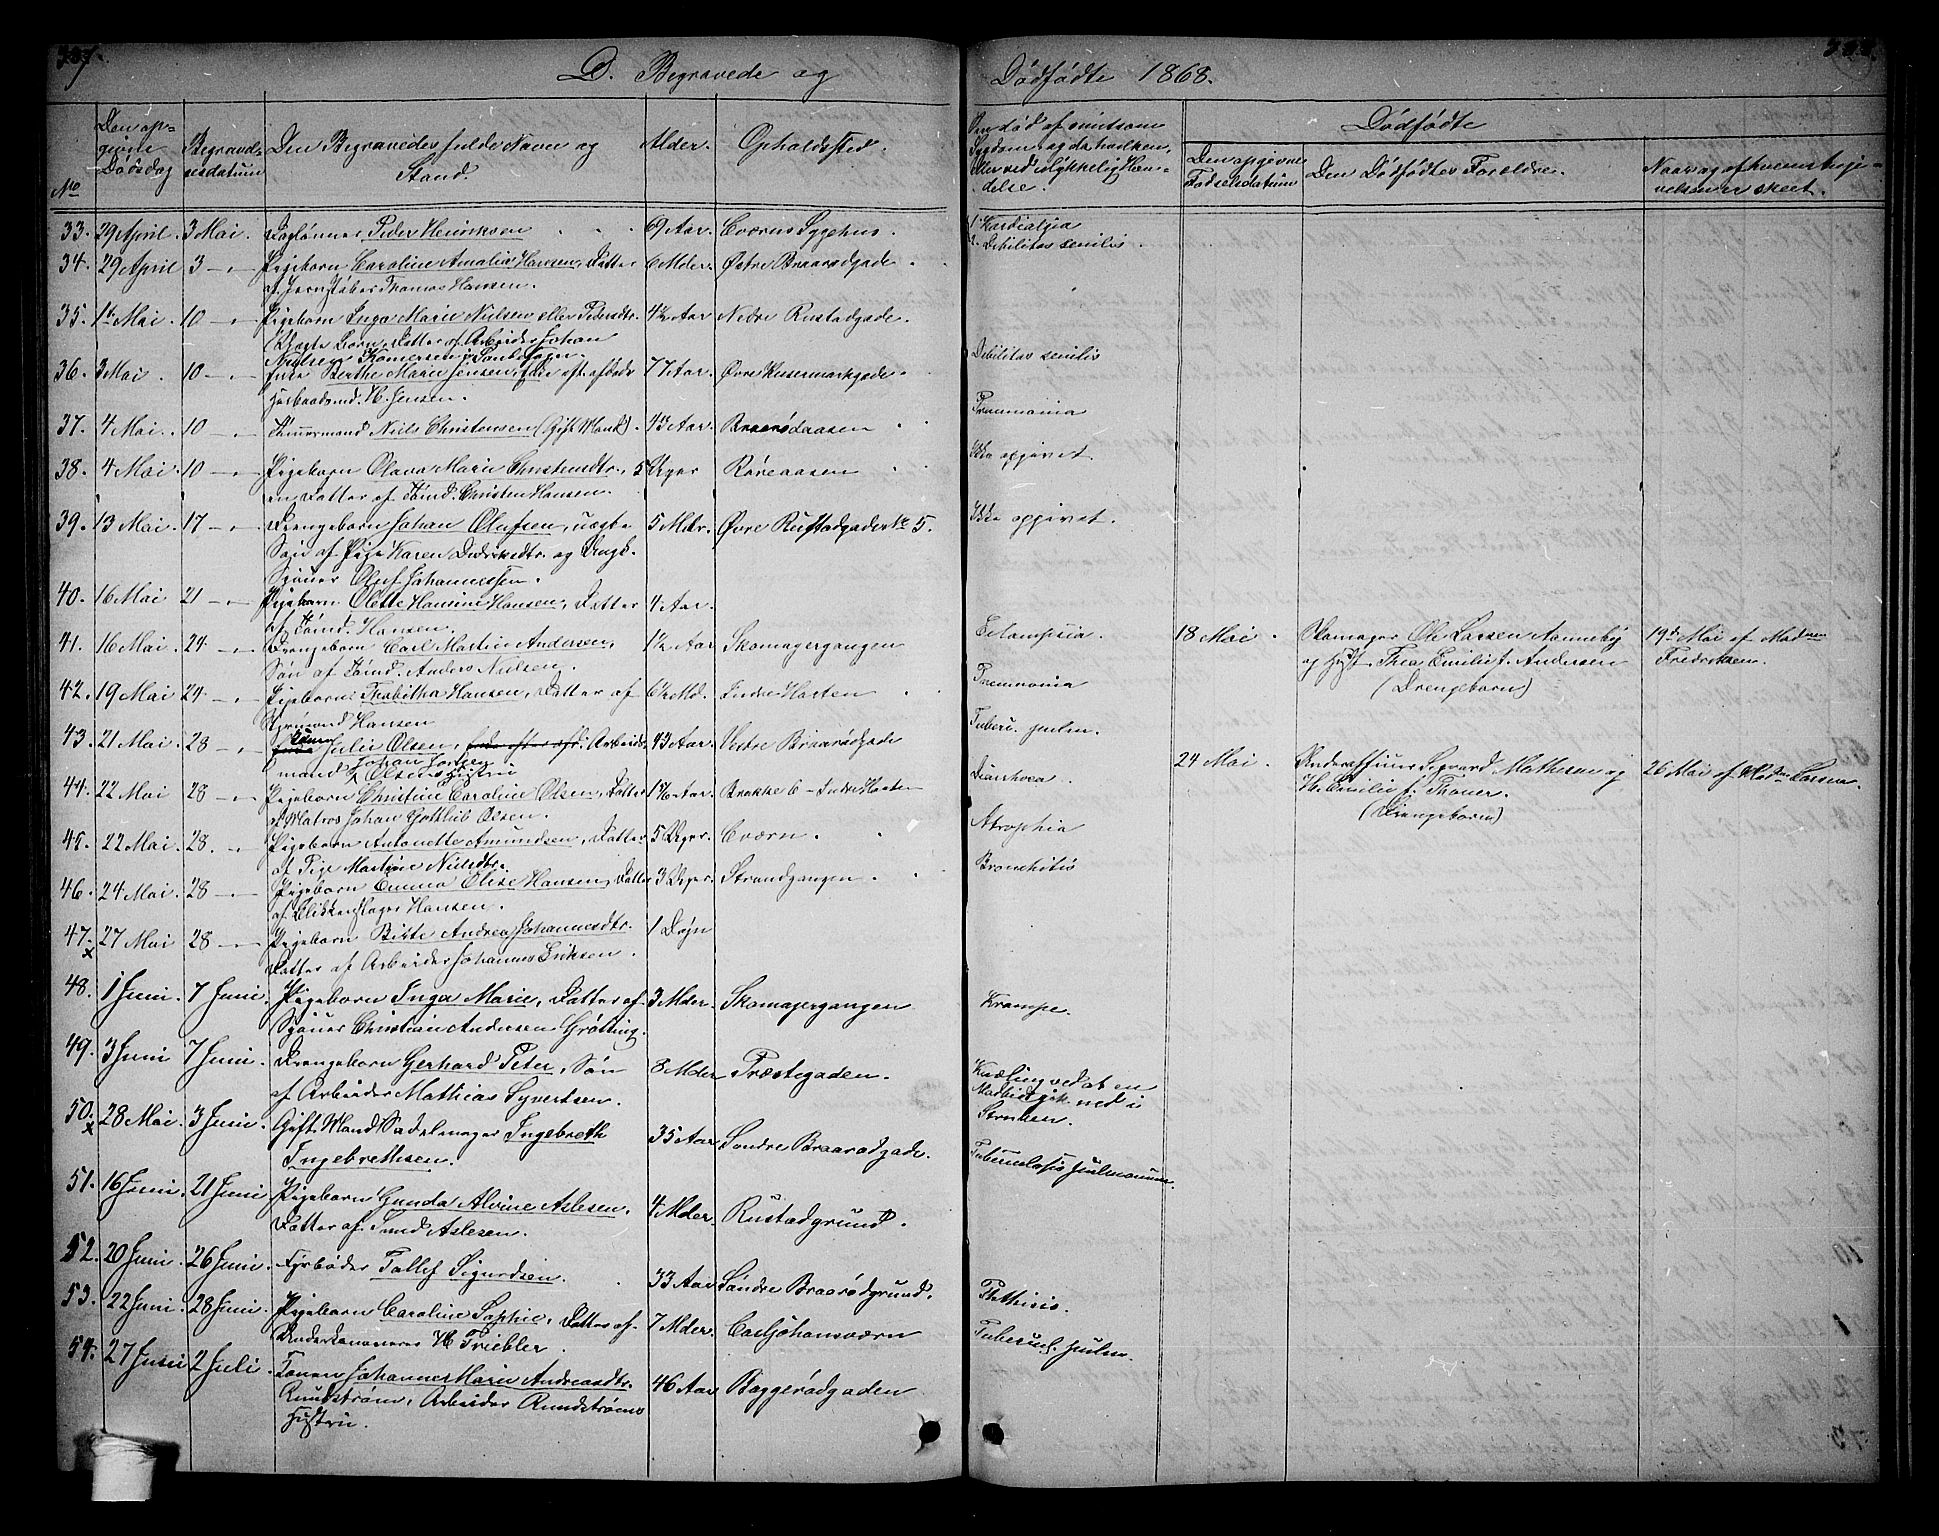 D. Begravede og Dødfødte 1868.
No
Den opgivne Dødsdag
Begravelsesdatum
Den Begravedes fulde Navn og Stand.
Alder.
Opholdssted.
Om død af smitsom Sygdom og da hvilken, eller ved ulykkelig Hændelse.
Dødfødte
Den opgivne Fødselsdatum
Den Dødfødtes Forældre.
Naar og af hvem
er skeet.
33. 29 April 3 Mai. Peder Henriksen 69 Aar. Sygehus. 1. Kardialgia
2. Debilitas senilis
34. 29 April 3 -"- Pigebarn Caroline Amalie Hansen, Datter 6 Mder. Østre Braarødgade
af Jernstøber Thomas Hansen.
35. 1st Mai 10 -"- Pigebarn Inga Marie Nielsen eller Pedersdtr. 4½ Aar Nedre Rustadgade.
Datter af Arbeider Johan
Nielsen
36. 3 Mai. 10 -"- Berthe Marie Jensen, 77 Aar. Øvre Debilitas senilis
H. Jensen.
37. 4 Mai. 10 -"- Tømmermand Niels Christensen (Gift Mand). Aar. Braarødaasen Pneumonia
38. 4 Mai 10 -"- Pigebarn Olava Marie Christensdtr., 5 Uger Røreaasen Ikke opgivet.
en Datter af Tømd. Christen Hansen.
39. 13 Mai 17 -"- Drengebarn Johan Olufsen, uægte 5 Mdr. Øvre Rustadgade No 5. Ikke opgivet.
Søn af Pige Karen Didriksdtr. og Ungk.
Sjøuer Oluf Johannessen.
40. 16 Mai 21 -"- Pigebarn Olette Hansine Hansen, Datter 4 Aar.
af Tømd. Hansen.
41. 16 Mai 24 -"- Drengebarn Carl Martin Andersen, 1½ Aar Skomagergangen Eclampsia. 18 Mai. Skomager Ole Lassen Aanneby 19de Mai af Madmen
Søn af Tømd. Anders Nielsen. og Hust. Thea Emilie f. Andersen Fredriksen.
(Drengebarn)
42. 19 Mai 24 -"- Pigebarn Thabitha Hansen, Datter af 6½ Md. Indre Hasten Pneumonia
Styrmand Hansen
43. 21 Mai 28 -"- Konen Julie Olsen, Arbeids- 43 Aar. Vestre Braarødgade Tuberc. pulm.
mand Johan Jørgen Olsens Hustru 24 Mai. Underofficer Sigvard Mathesen og 26 Mai af
44. 22 Mai 28 -"- Pigebarn Christine Caroline Olsen, Datter Aar. Brakke 6 - Indre Hasten Diarrhoea. H. Emilie f. Thoner.
af Matros Johan Gottlieb Olsen. (Drengebarn)
45. 22 Mai. 28. -"- Pigebarn Antonette Amundsen, Datter 5 Uger. Cværn. Atrophia
af Pige Martine Nielsdtr.
46. 24 Mai 28 -"- Pigebarn Emma Elise Hansen, Datter 3 Uger. Strandgangen. Bronchitis
af Blikkenslager Hansen.
47. x 27 Mai 28 -"- Pigebarn Birte Andrea Johannesdtr. 1 Døjn
Datter af Arbeider Johannes Eriksen.
48. 1 Juni 7 Juni. Pigebarn Inga Marie, Datter af 3 Mder. Skomagergangen Krampe.
Sjøuer Christian Andersen Grøtting.
49. 3 Juni 7 Juni. Drengebarn Gerhard Peter, Søn 8 Mder Præstegaden. Kvæling ved at en
af Arbeider Mathias Syvertsen. Madbid gik ned i
50. x 28 Mai. 3 Juni. Gift Mand Sadelmager Ingebreth 35 Aar Søndre Braarødgade. Struben.
Ingebrethsen. Tuberculosis pulmonum.
51. 16 Juni 21 Juni Pigebarn Gunda Alvine Aslesen, 4 Mder. Rustadgrund.
Datter af Tømd Aslesen.
52. 20 Juni 26 Juni. Fyrbøder Tollef Sigurdsen. 33 Aar Søndre Braarødgrund. Phthisis.
53. 22 Juni 28 Juni. Pigebarn Caroline Sophie, Datter af 7 Mder. Carljohansværn Tubercul. pulm.
Underkanoneer H Triebler.
54. 27 Juni 2 Juli. Konen Johanne Marie Andreasdtr. 46 Aar Baggerødgaden
Rundstrøm, Arbeider Rundstrøms
Hustru.